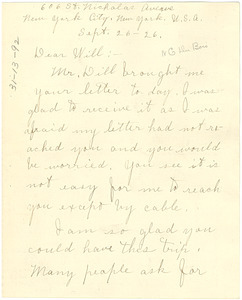 686 St. Nickolas Avenue
New York City, New York. U.S.A.
Sept. 26 - 26.
Dear Will:-
Mr. Dill brought me
your letter to day. I was
glad to receive it as I was
afraid my letter had not re
ached you and you would
be worried. You see it is
not easy for me to reach
you except by cable.
I am so glad you
could have this trip.
Many people ask for
31-13-92